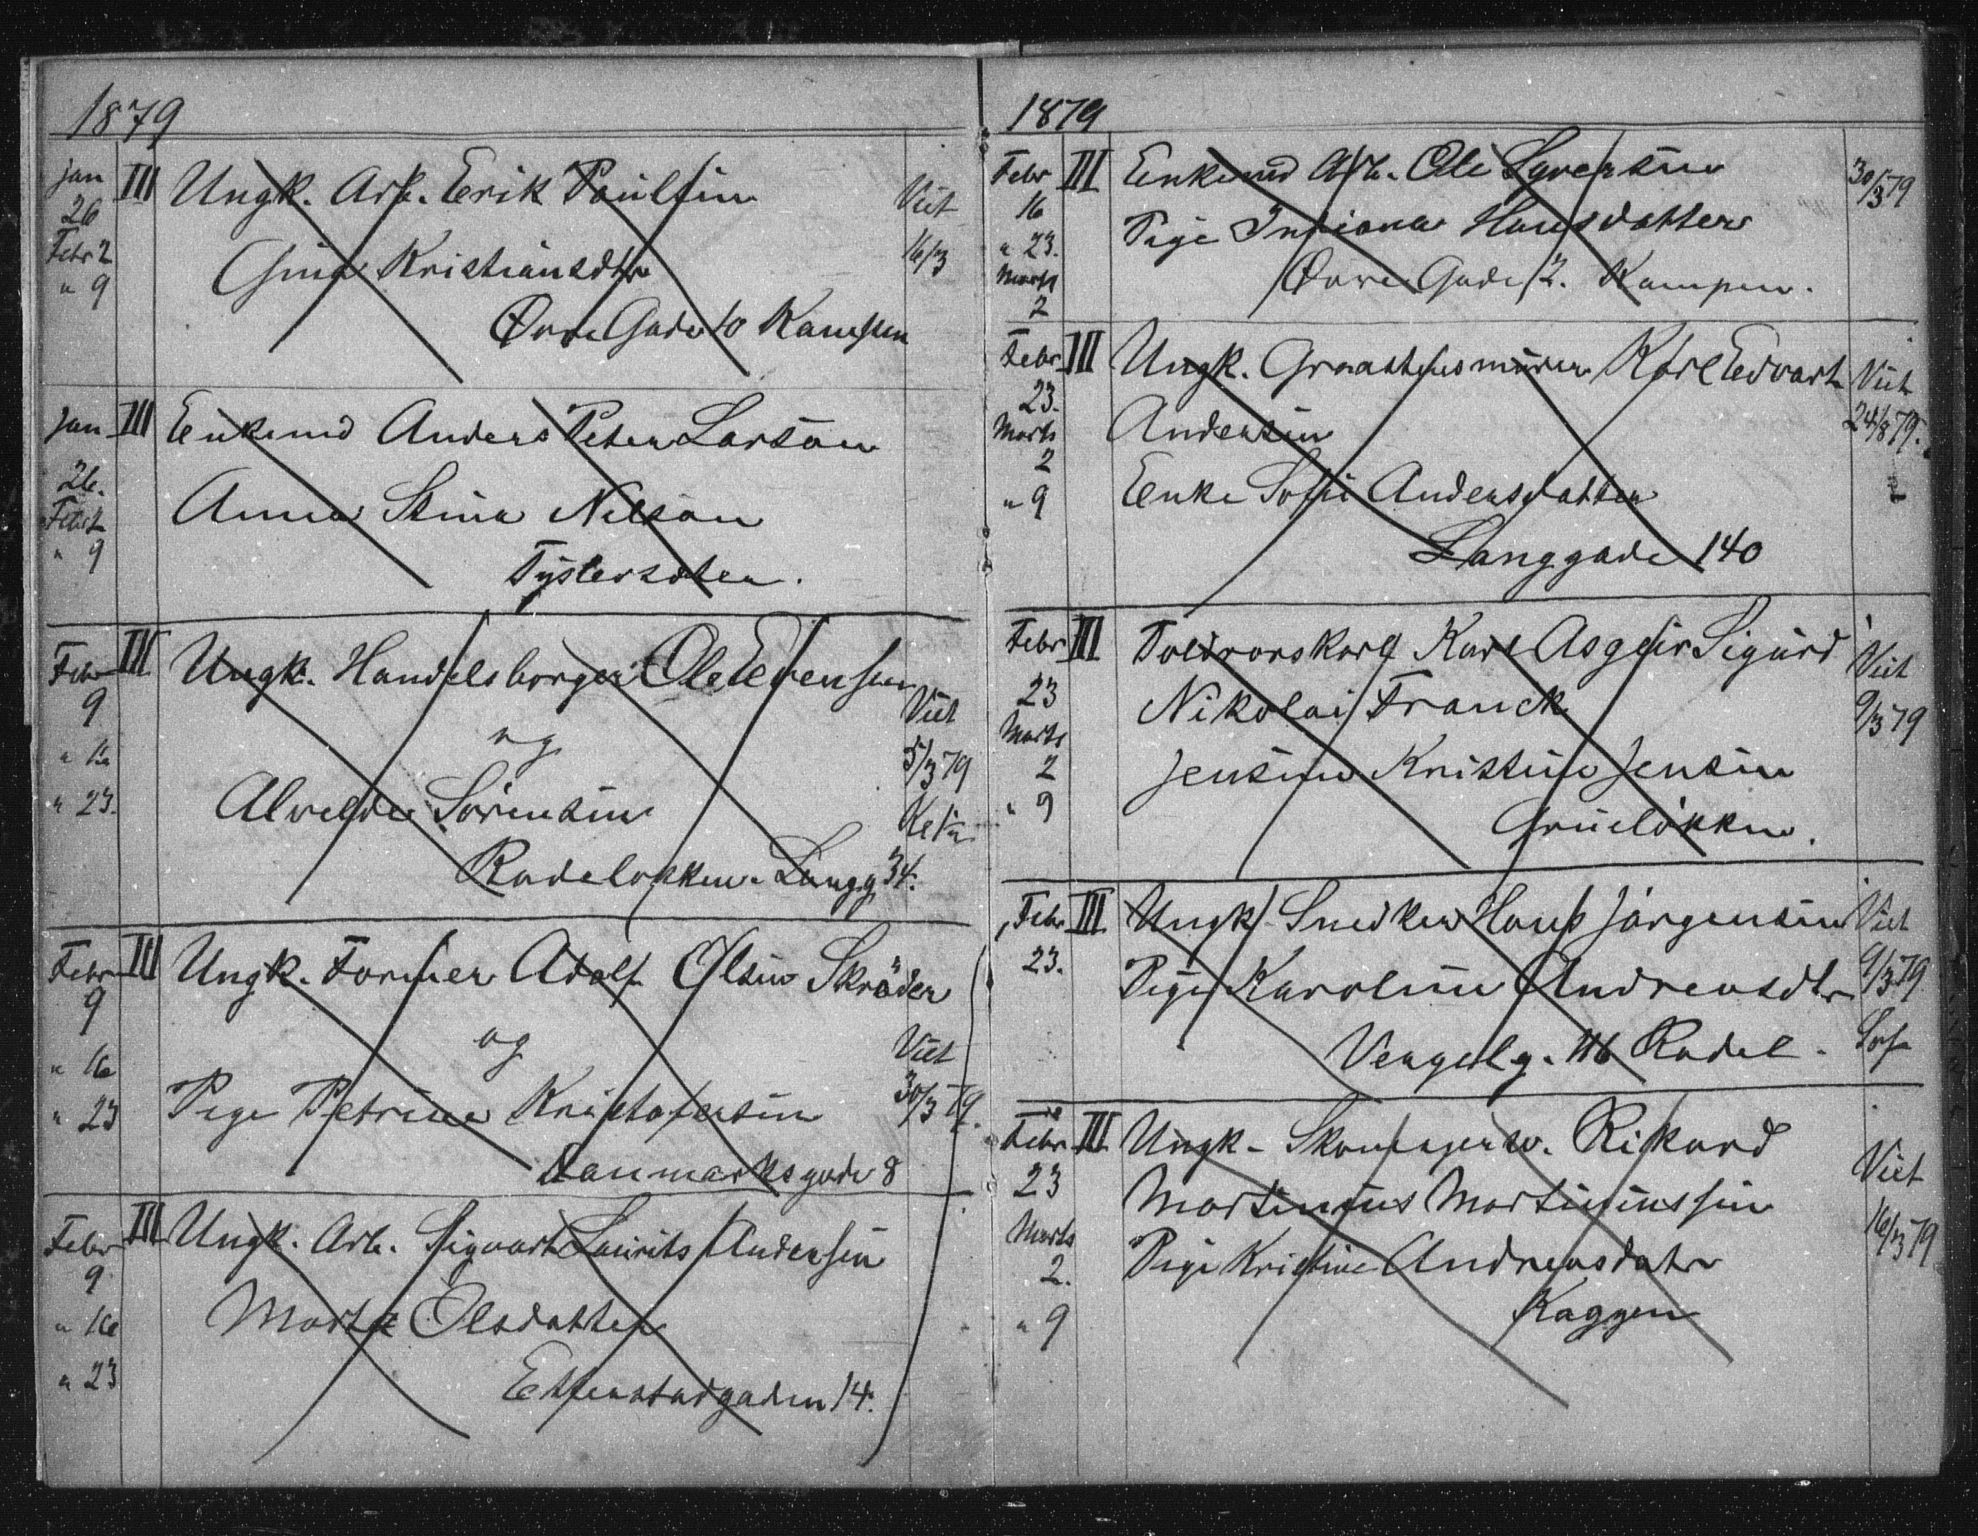 1879
Jan III Ungk. Arb. Erik Paulsen Viet
26 Gina Kristiansdtr 16/3
Febr 2
" 9 Øvre Gade 10 Kampen
Jan III Enkemd Anders Peter Larson
26. Anna Stina Nilson
Febr 2
" 9 Tøstersøten.
Febr III Ungk. Handelsborger Ole Evensen
9 og Viet
" 16 5/3 79
" 23. Alvelde Sørensen
Rodeløkken. Langg 34.
Febr III Ungk. Former Adolf Olsen Skrøder
9 og Viet
" 16 30/3 79.
" 23 Pige Petrine Kristofersen
Danmarksgade 8
Febr III Ungk. Arb. Sigvart Laurits Andersen
9
" 16 Marte Olsdatter
" 23 14.
1879
Febr III Enkemd Arb. Ole Syversen 30/3 79
16 Pige Indiana Hansdatter
" 23.
Marts Øvre Gade 2. Kampen.
2
Febr III Ungk. Graastensmurer Karl Edvart Viet
23. Andersen 24/8 79.
Marts
2
" 9 Enke Sofie Andersdatter
Langgade 140
Febr III Toldrorskarl Karl Asgeir Sigurd Viet
23 Nikolai Franck 9/3 79
Marts
2 Jensine Kristine Jensen
" 9 Grueløkken.
Febr III Ungk. Snedker Hans Jørgensen Viet
23. Pige Karoline Andreasdtr 9/3 79
Vengelg. 116 Rodel.
Febr III Ungk. Skomagersv. Rikard Viet
23 Martinius Martiniussen 16/3 79
Marts
2. Pige Kristine Andreasdatr
" 9 Kaggen